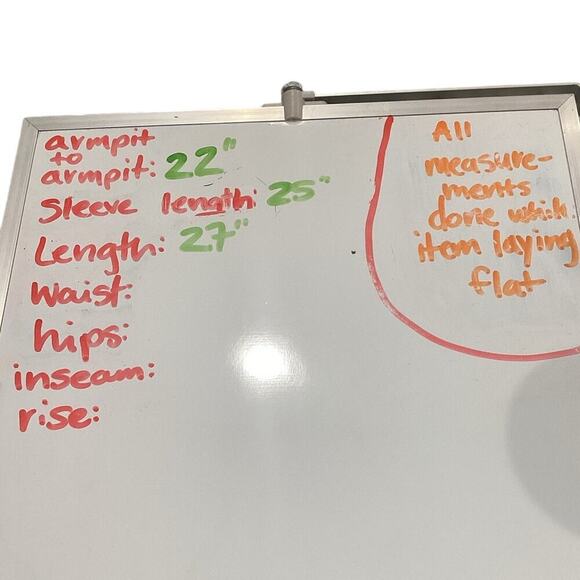 armpit
to
armpit: 22"
Sleeve length: 25"
Length: 27"
Waist:
hips:
inseam:
rise:
All
measure-
ments
done while
item laying
flat